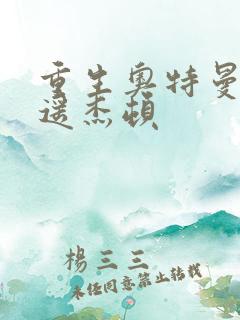 重生奥特曼
遥杰顿
楊三三
未任同意禁止转载